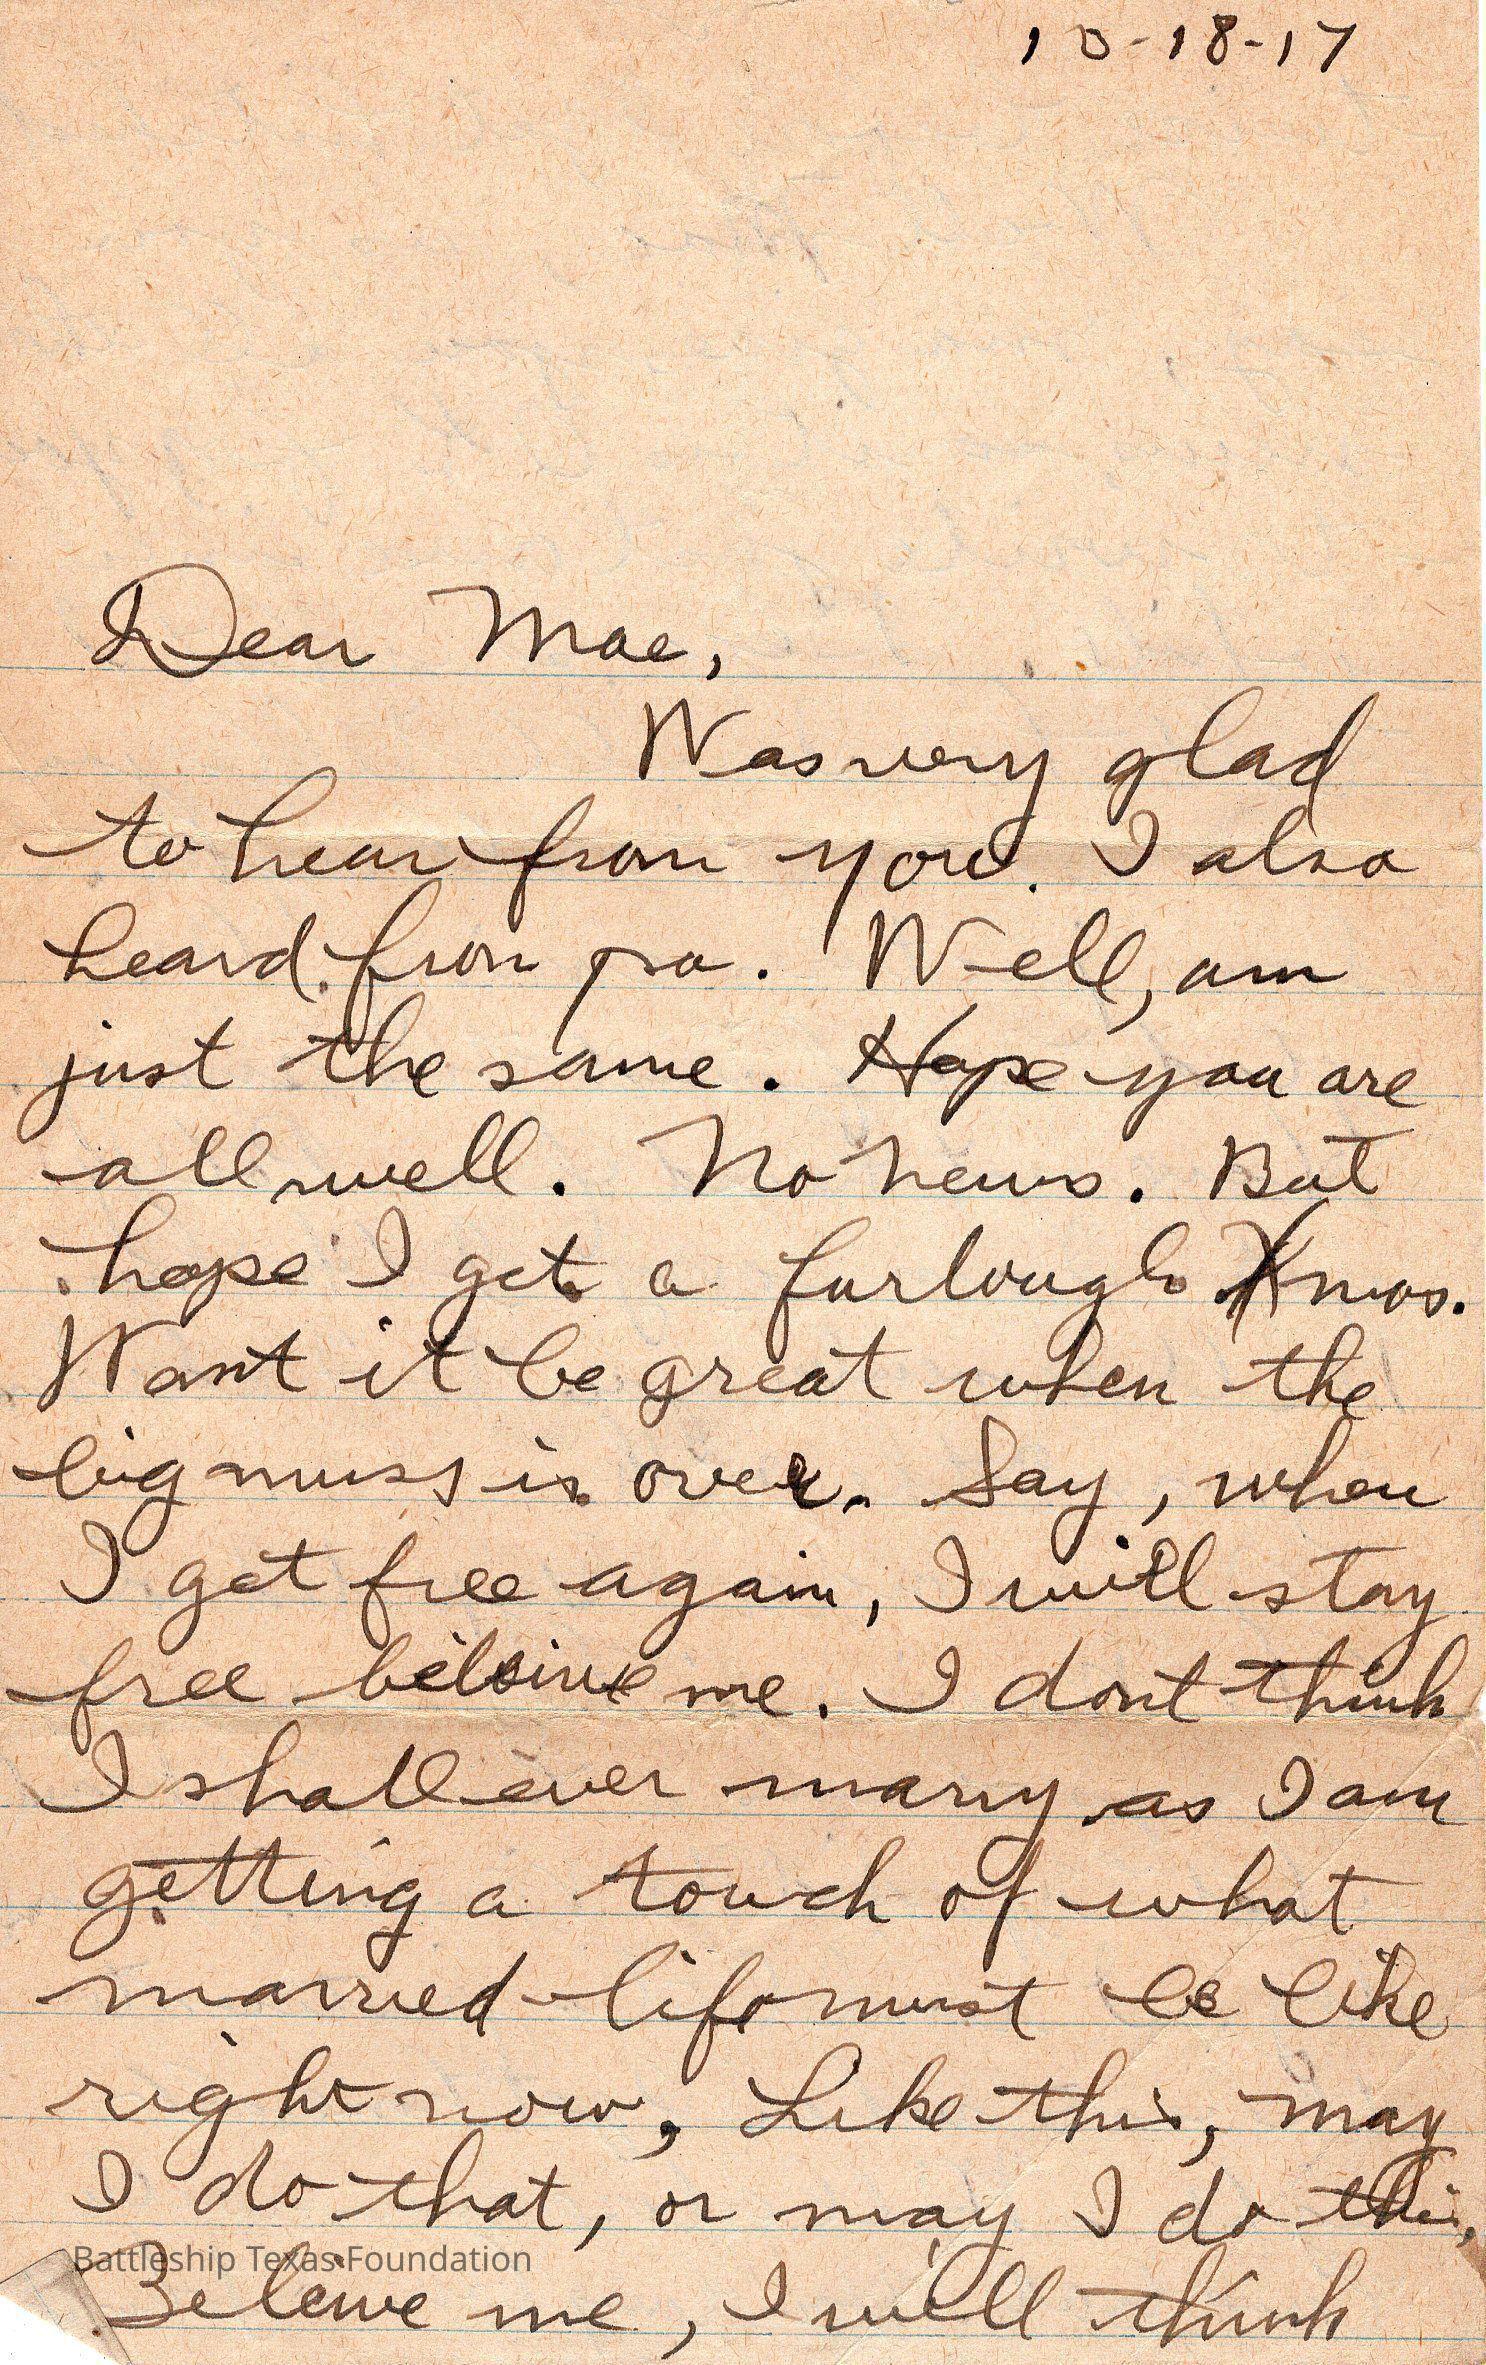 10-18-17
Dear Mae,
Was very glad
to hear from you. I also
heard from pa. Well, am
just the same. Hope you are
all well. No news. But
hope I get a furlough Xmas.
Wont it be great when the
big muss is over. Say, when
I get free again, I will stay
free beleive me. I dont think
I shall ever marry as I am
getting a touch of what
married life must be like
right now, Like this, may
I do that, or may I do this,
Battleship Texas Foundation
Beleive me, I will think